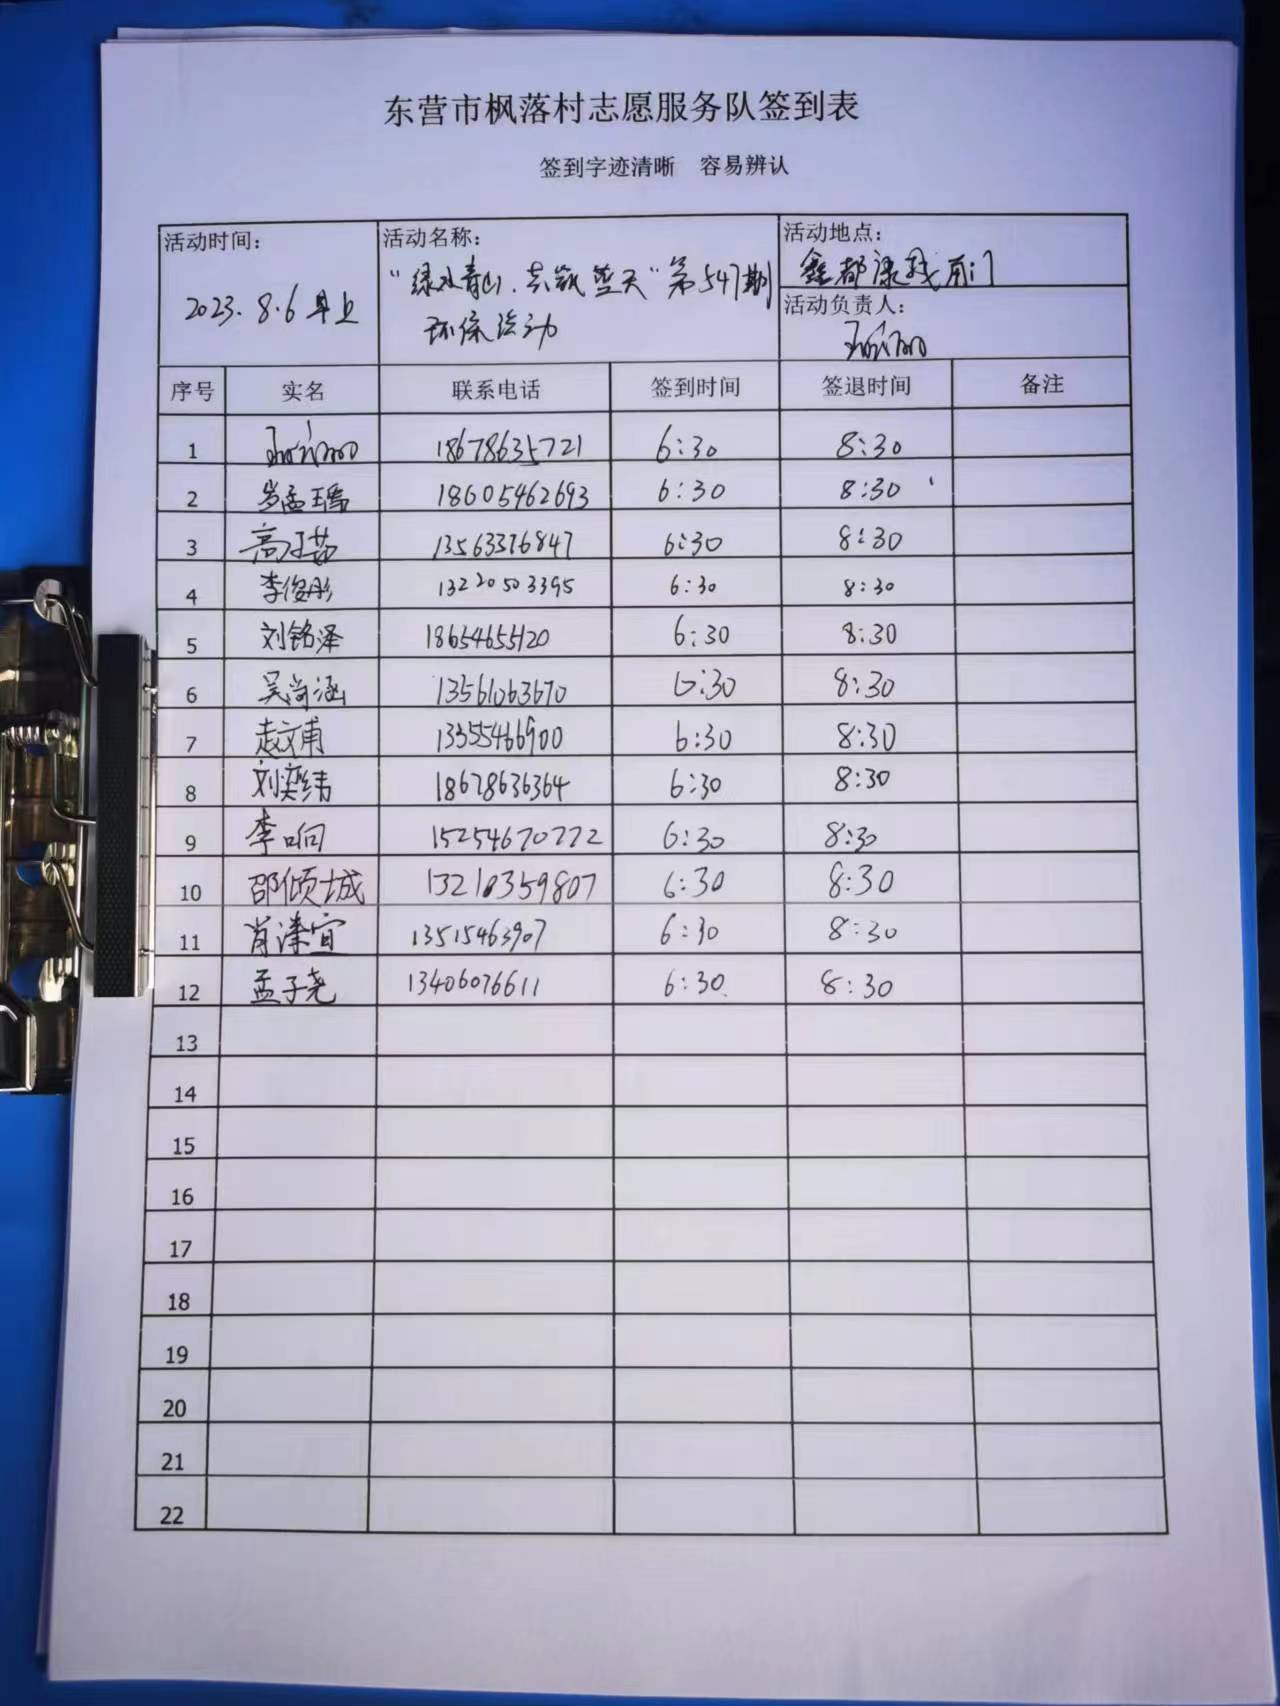 东营市枫落村志愿服务队签到表
签到字迹清晰 容易辨认
活动时间: 活动名称: 活动地点:
2023.8.6 早上 "绿水青山.共筑蓝天"第547期 鑫都 南门
环保活动 活动负责人:
序号 实名 联系电话 签到时间 签退时间 备注
1 18678635721 6:30 8:30
2 18605462693 6:30 8:30
3 高子茹 13563376847 6:30 8:30
4 李俊彤 13220503395 6:30 8:30
5 刘铭泽 18654655120 6:30 8:30
6 吴尚涵 13561063670 6:30 8:30
7 赵文甫 13355466900 6:30 8:30
8 刘奕纬 18678636364 6:30 8:30
9 李响 15254670772 6:30 8:30
10 邵倾城 13210359807 6:30 8:30
11 肖溱宜 13515463907 6:30 8:30
12 孟子尧 13406076611 6:30 8:30
13
14
15
16
17
18
19
20
21
22